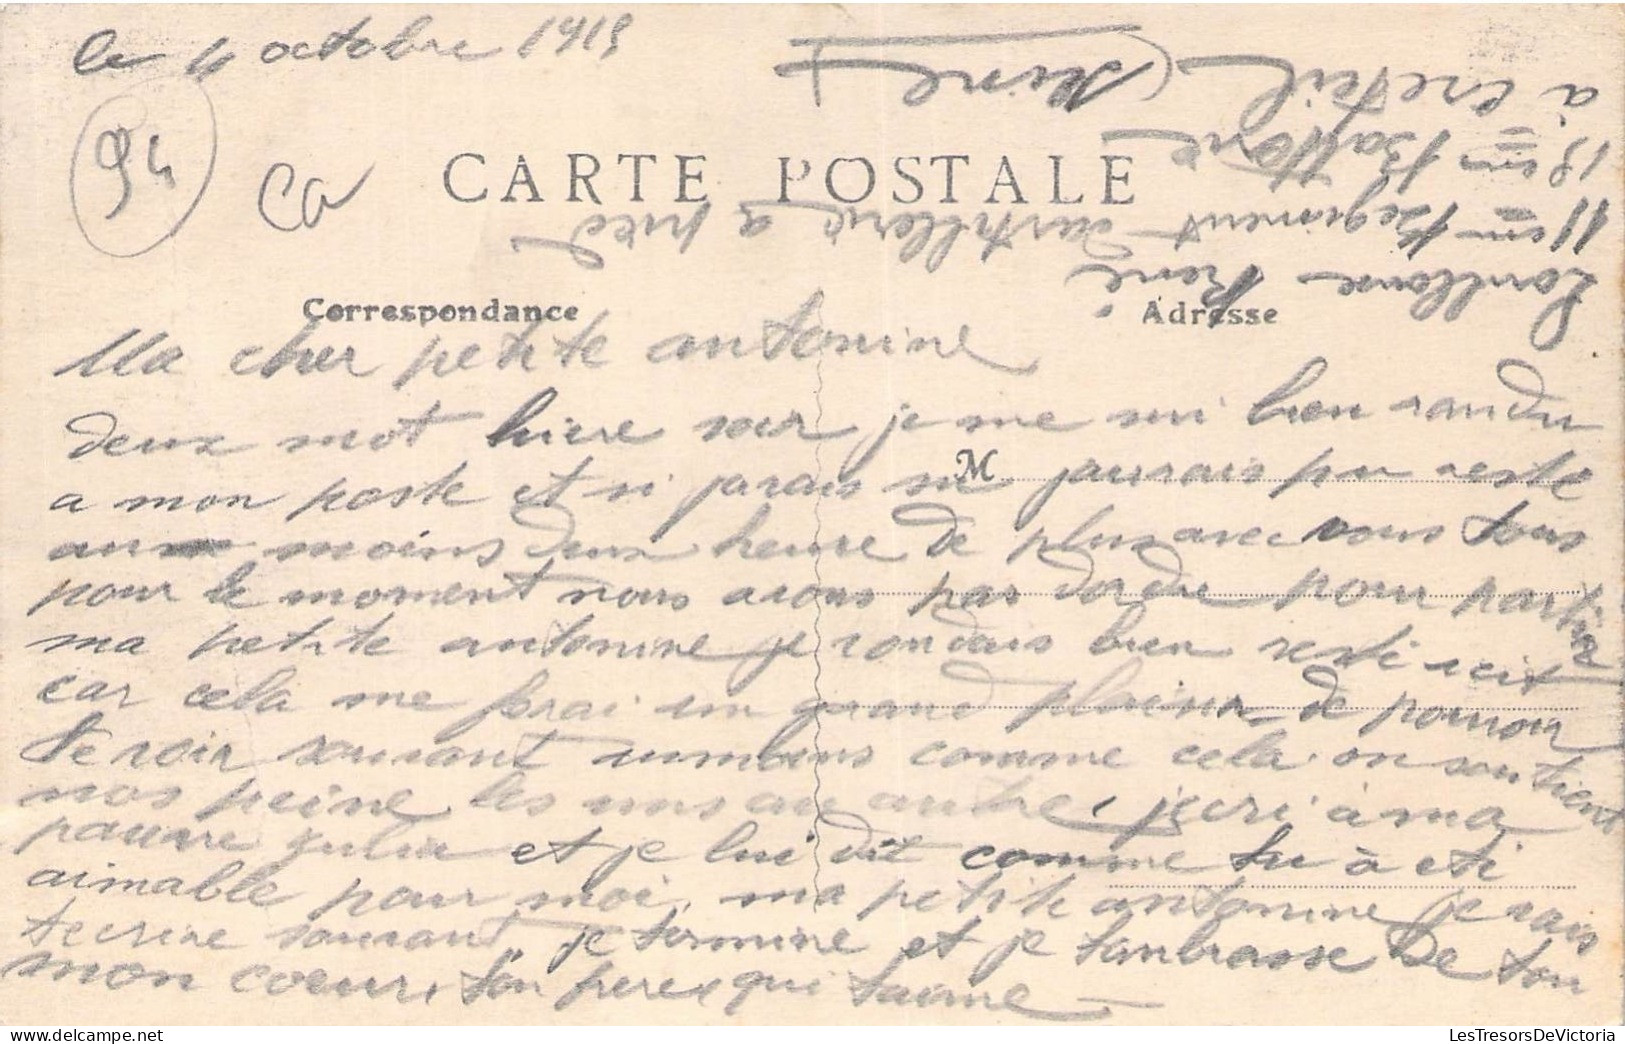 le 4 octobre 1915
94
Ca
CARTE POSTALE
Correspondance
Adresse
M
Ma cher petite antonine
deux mot hiere soir je me sui bien randu
a mon poste et si javais su jaurais pu reste
au moins deux heure de plus avec vous tous
pour le moment nous avons pas dordre pour partir
ma petite antonine je voudais bien resté icit
car cela me ferai un grand plaisir de pouvoir
te voir souvant comme cela on soutient
nos peine les uns au autre, jecri à ma
pauvre julia et je lui dit comme tu à eté
aimable pour moi, ma petite antonine je vais
tecrire souvant, je termine et je tambrasse de ton
mon coeur, ton pere qui taime
René
11em Regiment dartillerie a pied
13em Batterie
à Creteil (Seine)
LesTresorsDeVictoria.com